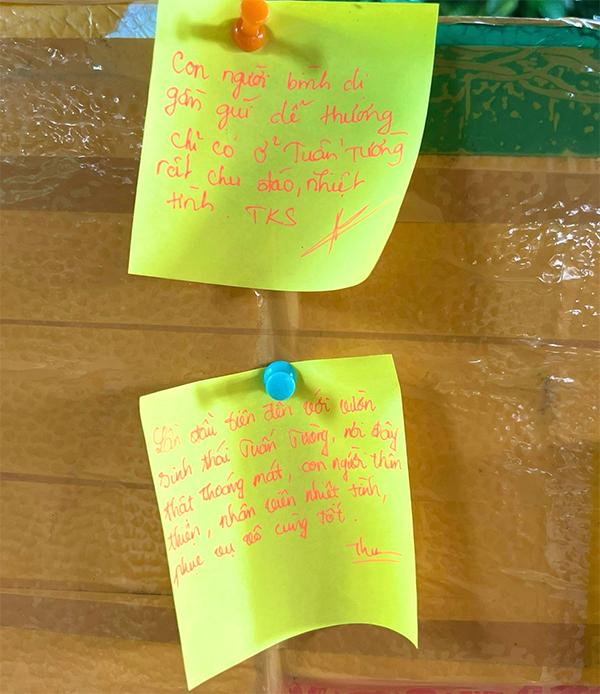 Con người bình dị
gần gũi dễ thương
chỉ có ở Tuấn Tường
rất chu đáo, nhiệt
tình. TKS
Lần đầu tiên đến với vườn
sinh thái Tuấn Tường, nơi đây
thật thoáng mát, con người thân
thiện, nhân viên nhiệt tình,
phục vụ vô cùng tốt.
Thu